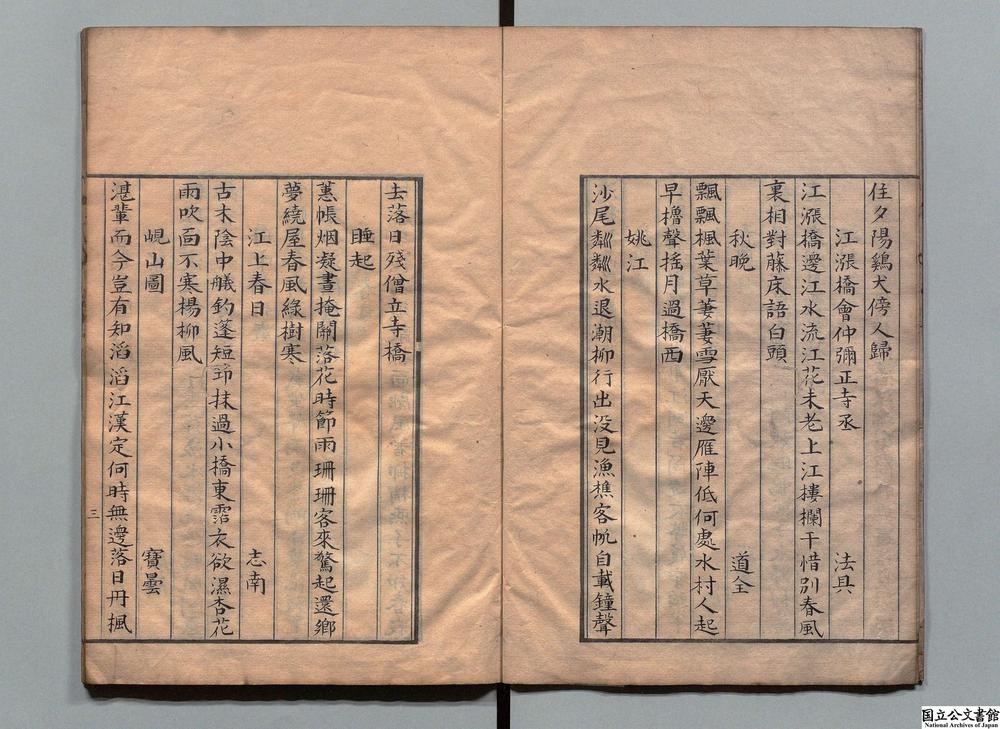 住夕陽鷄犬傍人歸
江漲橋會仲彌正寺丞　法具
江漲橋邊江水流江花未老上江樓欄干惜別春風
裏相對藤床語白頭
秋晚　道全
飄飄楓葉草萋萋雪厭天邊雁陣低何處水村人起
早櫓聲搖月過橋西
姚江
沙尾粼粼水退潮柳行出没見漁樵客帆自載鐘聲
去落日殘僧立寺橋
睡起
蕙帳烟凝晝掩關落花時節雨珊珊客來驚起還鄉
夢繞屋春風綠樹寒
江上春日　志南
古木陰中艤釣蓬短笻抹過小橋東霑衣欲濕杏花
雨吹面不寒楊柳風
峴山圖　寶曇
湛輩而今豈有知滔滔江漢定何時無邊落日丹楓
三
国立公文書館
National Archives of Japan